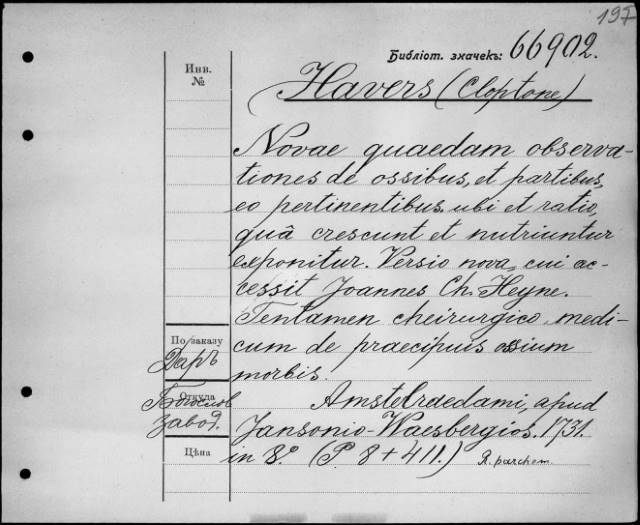 197
Библіот. значекъ: 66902.
Инв.
№
Havers (Cloptone)
Novae quaedam observa-
tiones de ossibus, et partibus,
eo pertinentibus, ubi et ratio,
quâ crescunt et nutriuntur
exponitur. Versio nova, cui ac-
cessit Joannes Ch. Heyne.
Tentamen cheirurgico-medi-
cum de praecipuis ossium
morbis.
По заказу
Даръ
Откуда
Богослов
завод.
Цѣна
Amstelraedami, apud
Jansonio-Waesbergios. 1731.
in 8.° (P. 8 + 411.) R. parchem.